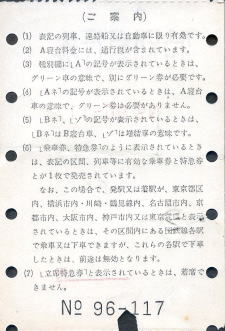 (ご案内)
(1) 表記の列車、連絡船又は自動車に限り有効です。
(2) A寝台料金には、通行税が含まれています。
(3) 特別欄に「A」の記号が表示されているときは、
グリーン車の意味で、別にグリーン券が必要です。
(4) 「Aネ」の記号が表示されているときは、A寝台
車の意味で、グリーン券は必要がありません。
(5) 「Bネ」、「ゾ」の記号が表示されているときは、
「Bネ」はB寝台車、「ゾ」は増結車の意味です。
(6) 「乗車券、特急券」のように表示されているとき
は、表記の区間、列車等に有効な乗車券と特急券
とが1枚で発売されています。
なお、この場合で、発駅又は着駅が、東京都区
内、横浜市内・川崎・鶴見線内、名古屋市内、京
都市内、大阪市内、神戸市内又は東京と表示
されているときは、その区間内にある国鉄線各駅
で乗車又は下車できますが、これらの各駅で下車
したときは、前途は無効となります。
(7) 「立席特急券」と表示されているときは、着席で
きません。
№ 96-117